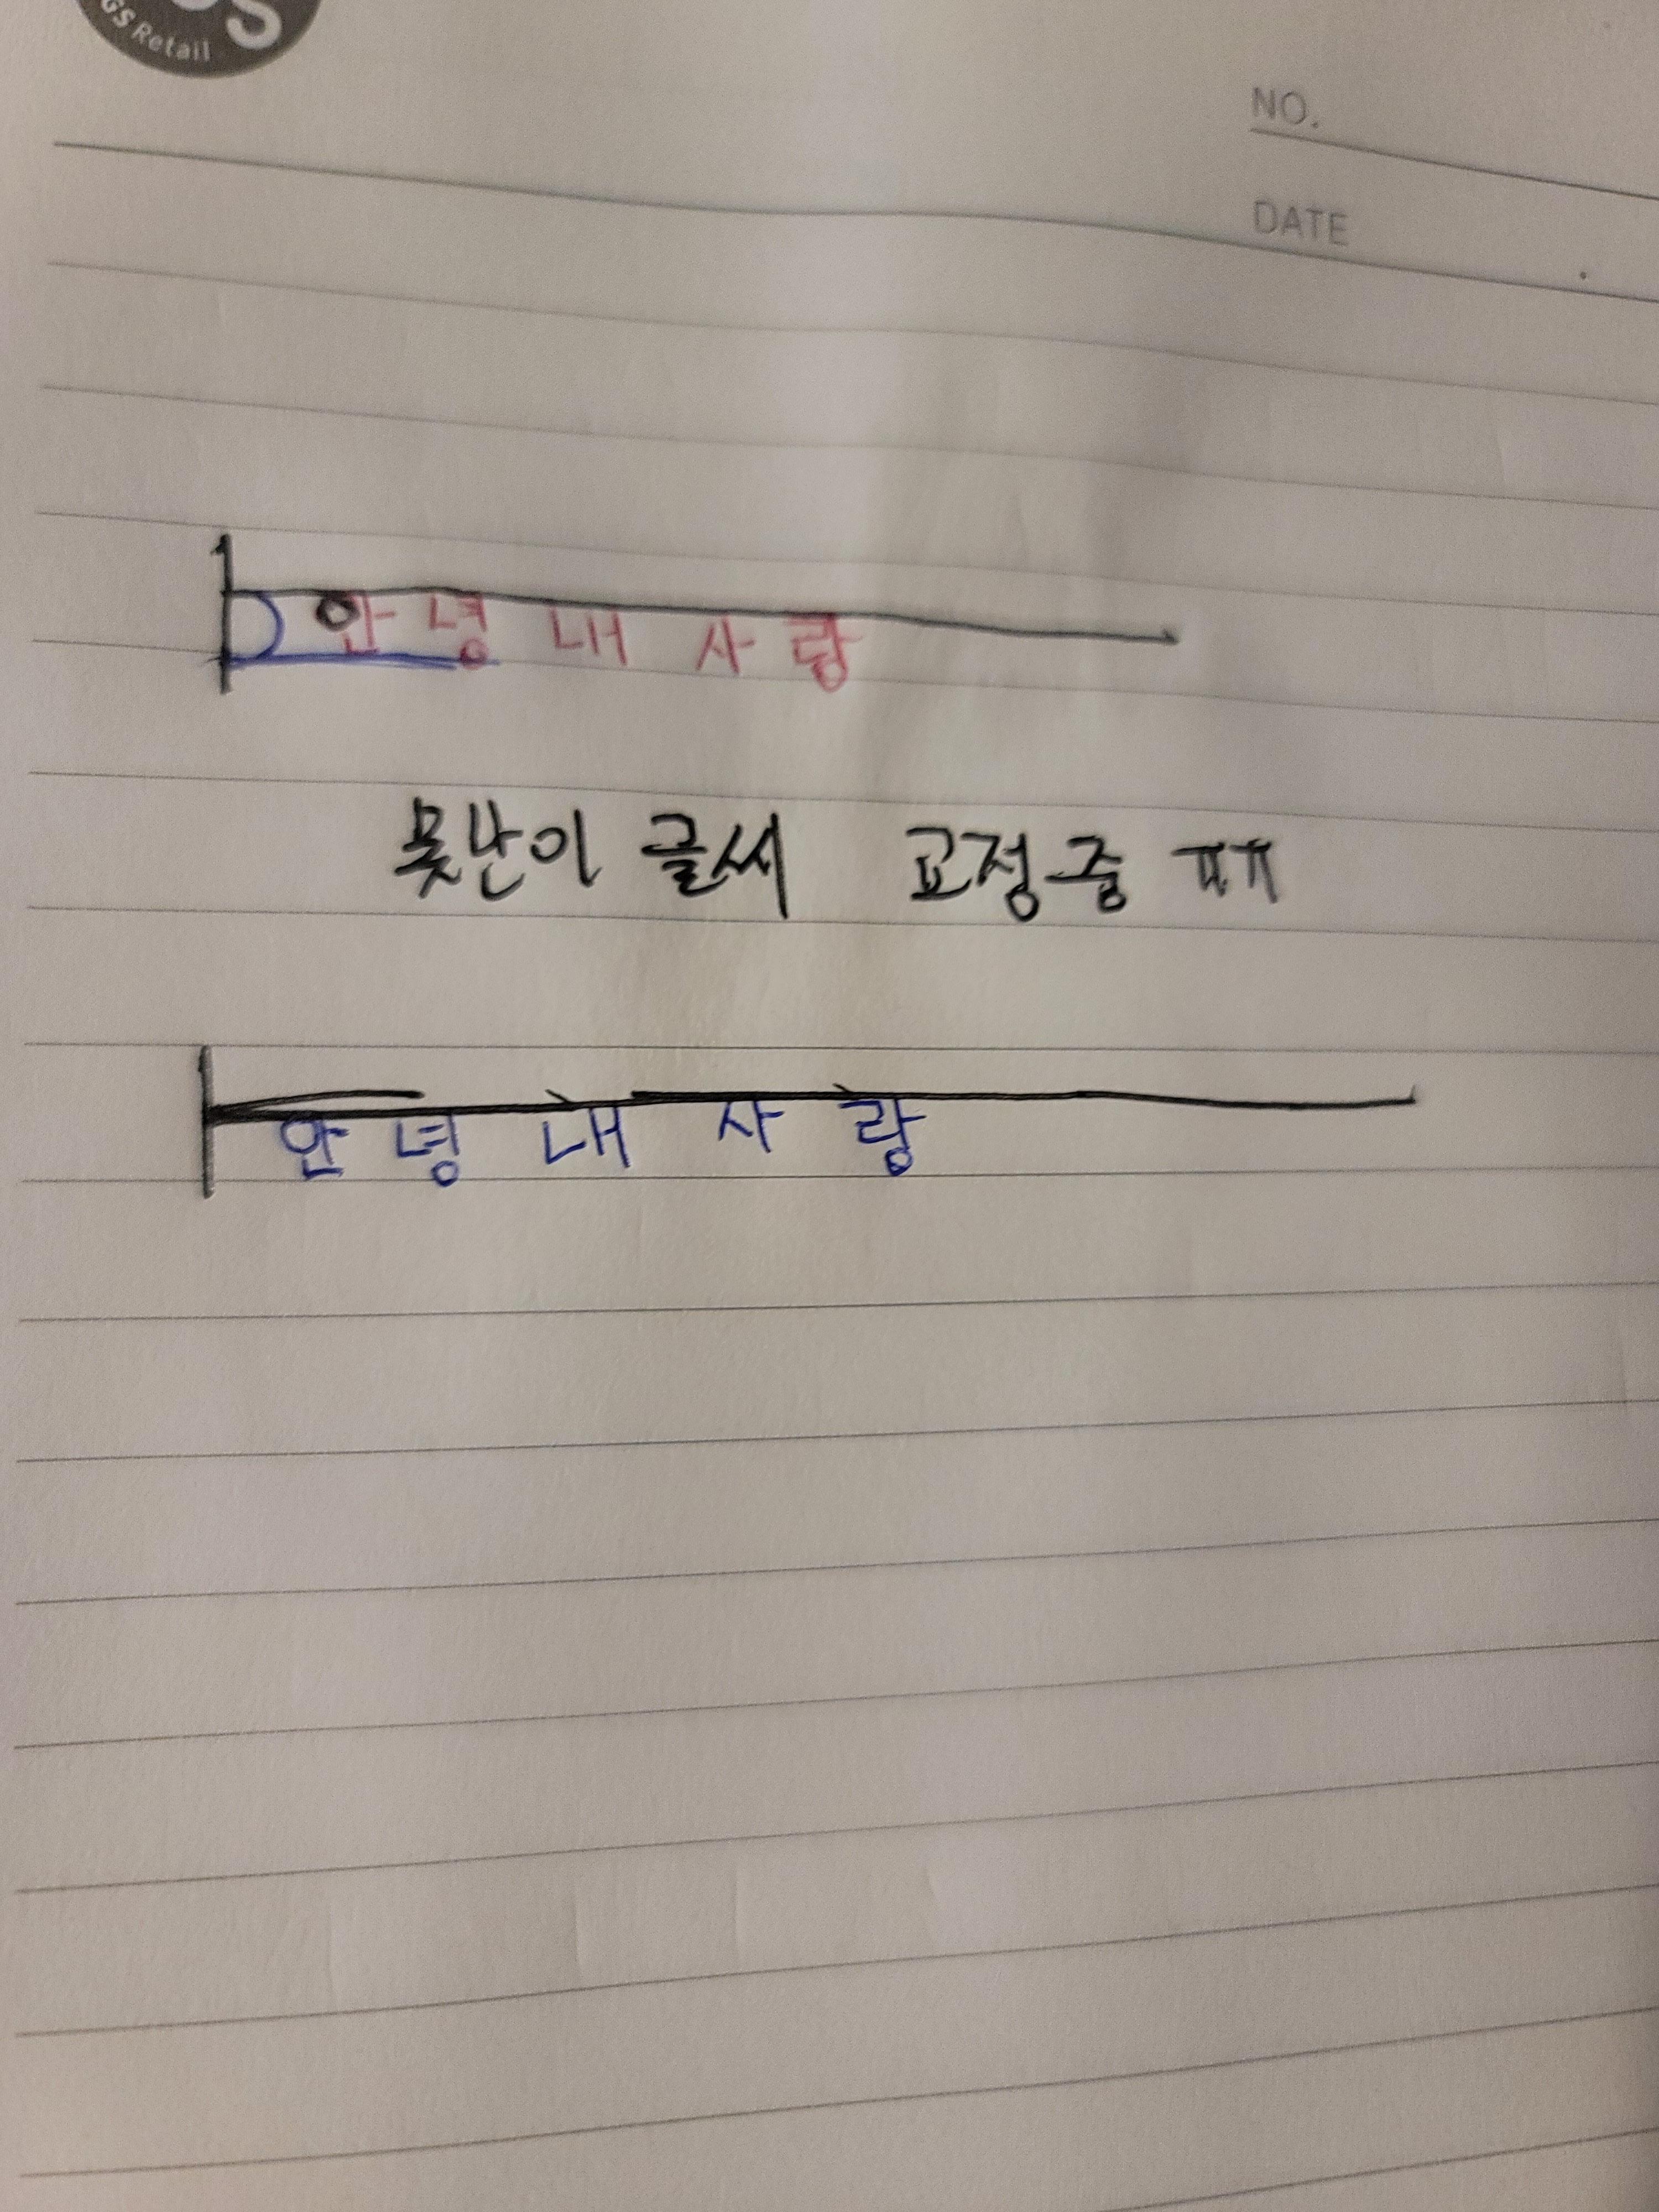 GS Retail
NO.
DATE
안녕 내 사랑
못난이 글씨 교정중 ㅠㅠ
안녕 내 사랑